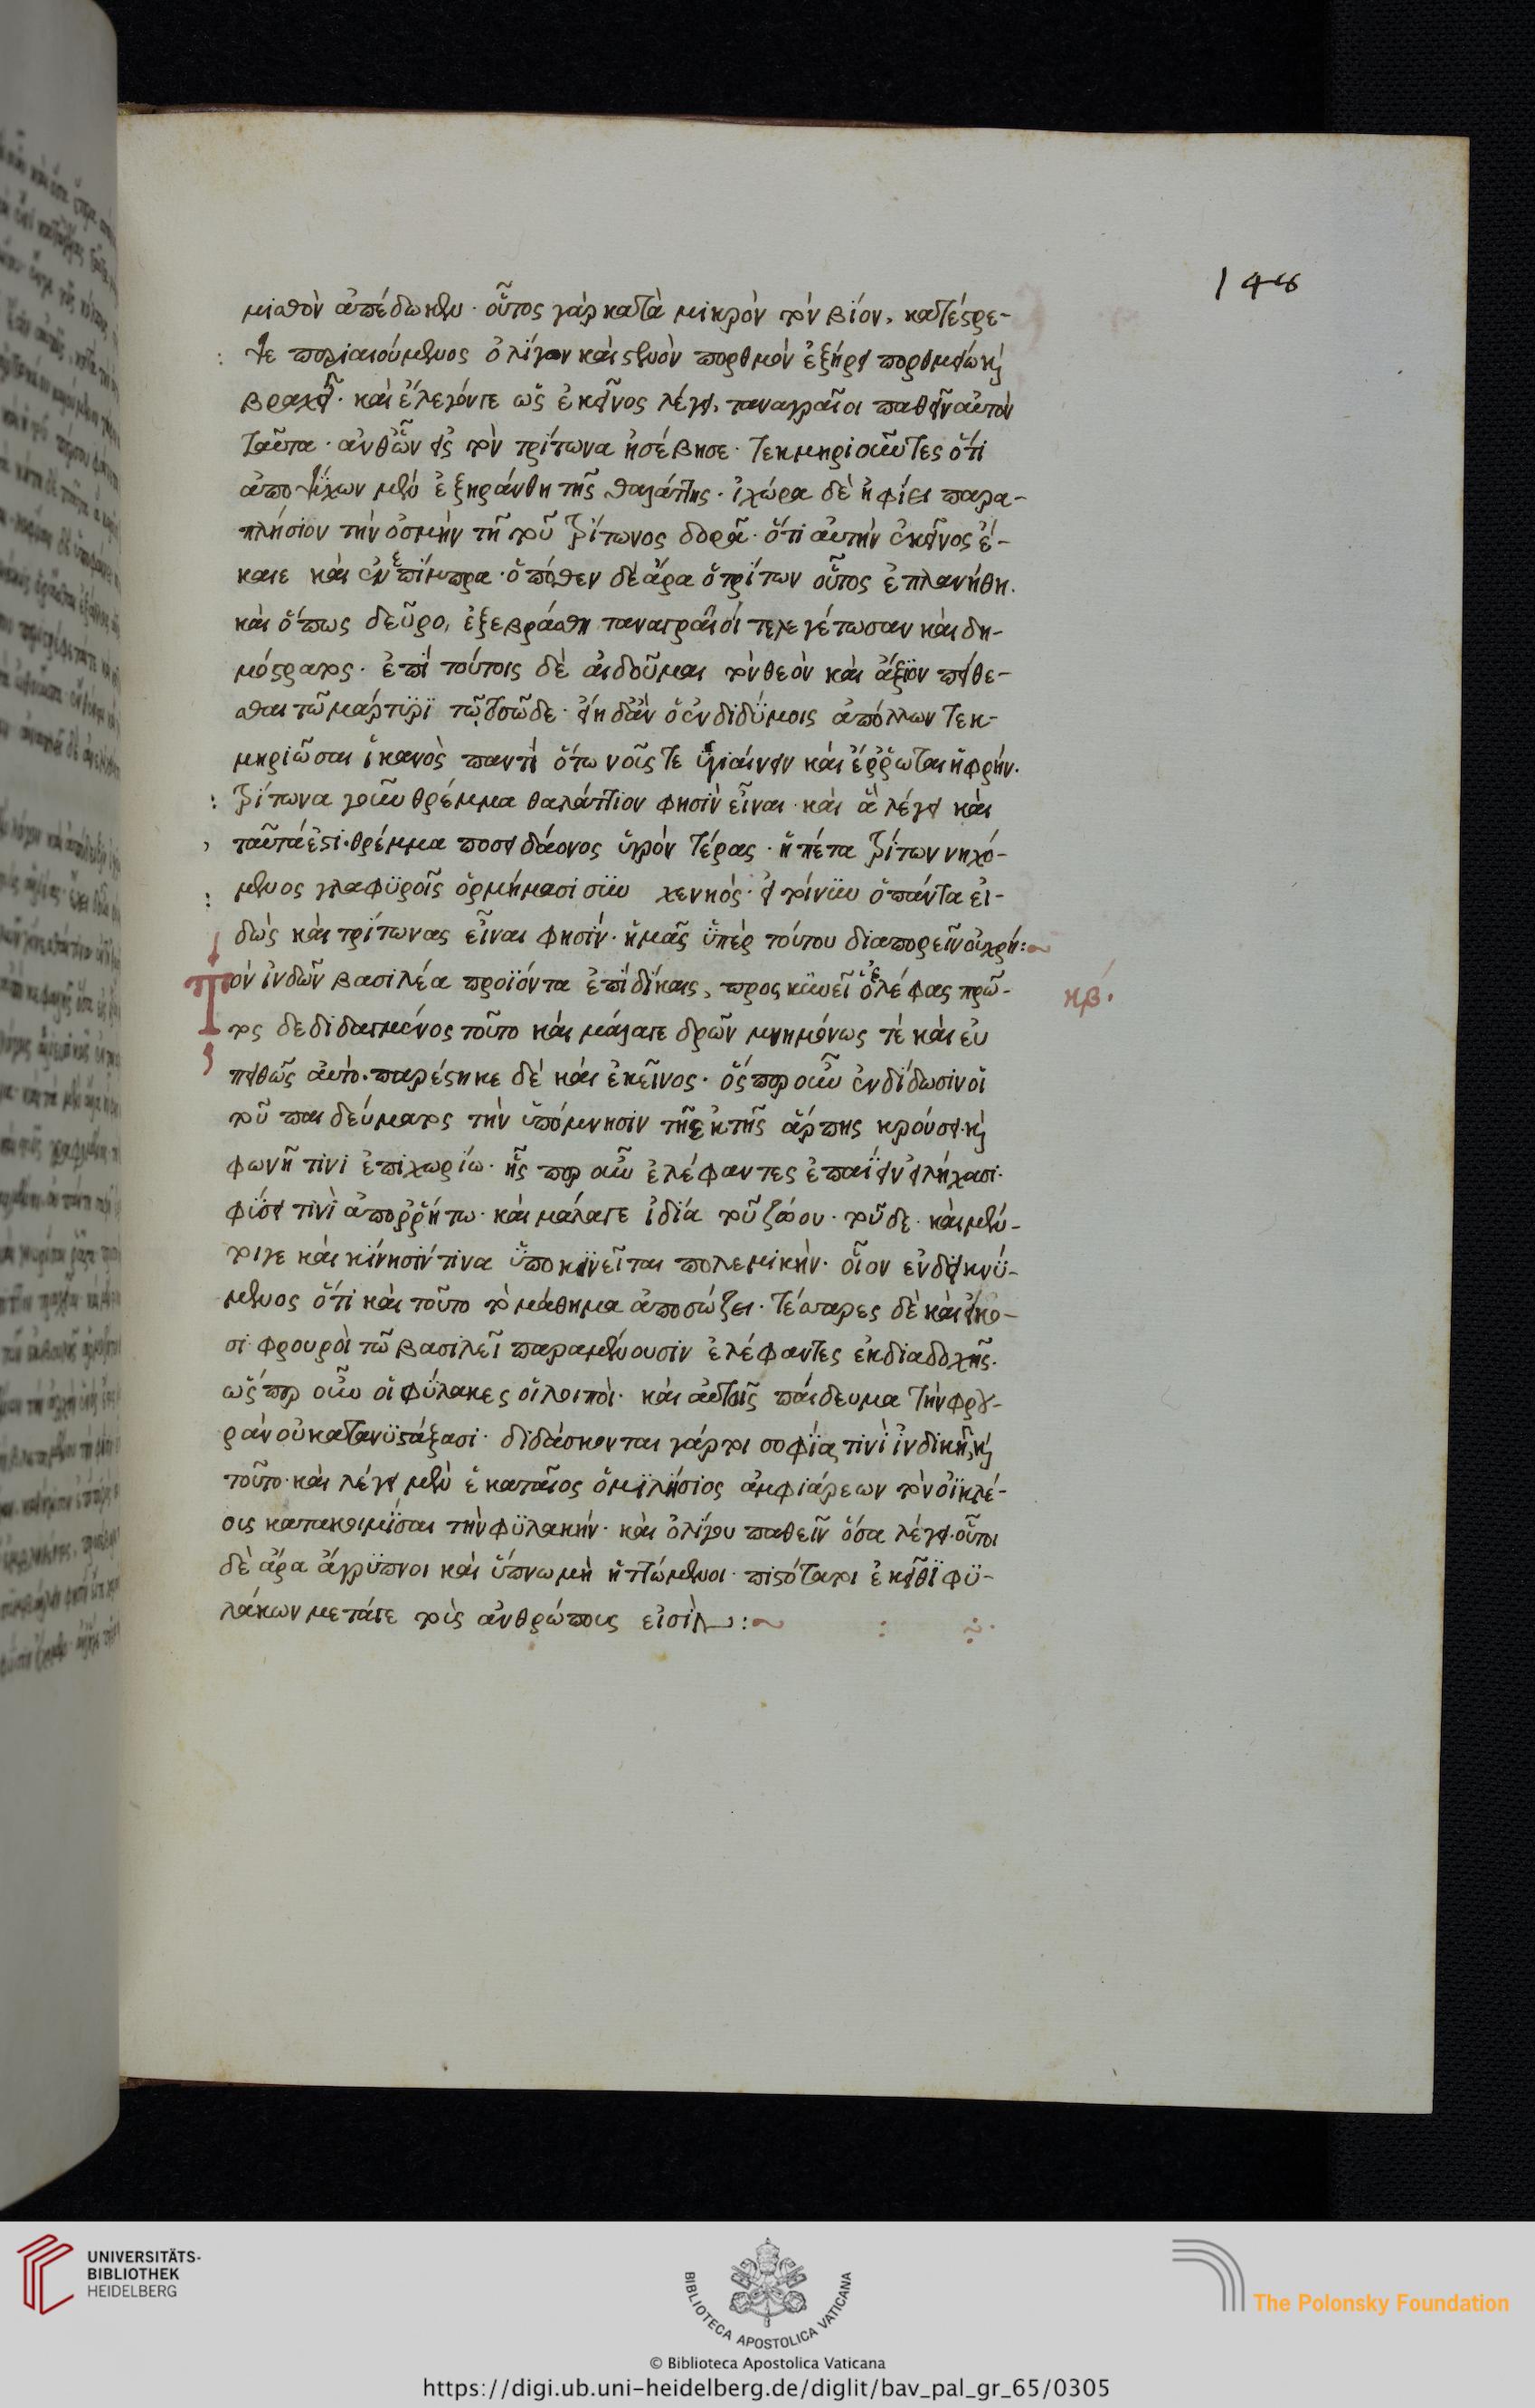 148
μισθὸν ἀπέδωκεν· οὗτος γὰρ κατὰ μικρὸν τὸν βίον, κατέστρε-
ψε πορισιούμενος ὀλίγον καὶ στενὸν πορθμὸν ἐξήρει πορθμείω καὶ
βραχεῖ· καὶ ἐλεγόν γε ὡς ἐκεῖνος λέγει, ταναγραῖοι παθεῖν αὐτὸν
ταῦτα· ἀνθ' ὧν εἰς τὸν τρίτωνα ἠσέβησε· τεκμηριοῦντες ὅτι
ἀποψύχων μὲν ἐξηράνθη τῆς θαλάττης· ἰχώρα δὲ ἠφίει παρα-
πλήσιον τὴν ὀσμὴν τῇ τοῦ τρίτωνος δορᾷ· ὅτι αὐτὴν ἐκεῖνος ἔ-
καιε καὶ ἐνεπίμπρα· ὁπόθεν δὲ ἄρα ὁ τρίτων οὗτος ἐπλανήθη.
καὶ ὅπως δεῦρο, ἐξεβράσθη ταναγραῖοί τε λεγέτωσαν καὶ δη-
μόστρατος· ἐπὶ τούτοις δὲ αἰδοῦμαι τὸν θεὸν καὶ ἄξιον πείθε-
σθαι τῶ μάρτυρι τῶ τοσῶδε· εἴη δ' ἂν ὁ ἐν διδύμοις ἀπόλλων τεκ-
μηριῶσαι ἱκανὸς παντὶ ὅτω νοῦς τε ὑγιαίνειν καὶ ἔρρωται ἡ φρήν.
τρίτωνα γοῦν θρέμμα θαλάττιον φησὶν εἶναι· καὶ ἃ λέγει καὶ
ταῦτά ἐστι· θρέμμα ποσειδάονος ὑγρὸν τέρας· ἠπέτα τρίτων νηχό-
μενος γλαφυροῖς ὁρμήμασι σὺν χενηός· εἰ τοίνυν ὁ πάντα εἰ-
δὼς καὶ τρίτωνας εἶναι φησίν· ἡμᾶς ὑπὲρ τούτου διαπορεῖν οὐ χρή:~
κβ.
Τὸν ἰνδῶν βασιλέα προϊόντα ἐπὶ δίκαις, προσκυνεῖ ὁ ἐλέφας πρῶ-
τος δεδιδαγμένος τοῦτο καὶ μάλα γε δρῶν μνημόνως τὲ καὶ εὐ
πειθῶς αὐτό· παρέστηκε δὲ καὶ ἐκεῖνος· ὅσπερ οὖν ἐνδίδωσιν οἱ
τοῦ παιδεύματος τὴν ὑπόμνησιν τῇ ἐκ τῆς ἅρπης κρούσει· καὶ
φωνῇ τινὶ ἐπιχωρίω· ἧς περ οὖν ἐλέφαντες ἐπαΐειν εἰλήχασι·
φύσει τινὶ ἀπορρήτω· καὶ μάλα γε ἰδία τοῦ ζώου· τοῦδε· καὶ μέν-
τοι γε καὶ κίνησίν τινα ὑποκινεῖται πολεμικήν· οἷον ἐνδεικνύ-
μενος ὅτι καὶ τοῦτο τὸ μάθημα ἀποσώζει· τέσσαρες δὲ καὶ εἴκο-
σι φρουροὶ τῶ βασιλεῖ παραμένουσιν ἐλέφαντες ἐκ διαδοχῆς·
ὥσπερ οὖν οἱ φύλακες οἱ λοιποί· καὶ αὐτοῖς παίδευμα τὴν φρου-
ρὰν οὐ κατανυστάξασι· διδάσκονται γάρ τοι σοφία τινὶ ἰνδικῇ καὶ
τοῦτο· καὶ λέγει μὲν ἑκαταῖος ὁ μιλήσιος ἀμφιάρεων τὸν οἰκλέ-
ους κατακοιμίσαι τὴν φυλακήν· καὶ ὀλίγου παθεῖν ὅσα λέγει· οὗτοι
δὲ ἄρα ἄγρυπνοι καὶ ὕπνω μὴ ἡττώμενοι· πιστότατοι ἐκεῖθι φυ-
λάκων μετά γε τοὺς ἀνθρώπους εἰσίν:~
UNIVERSITÄTS-
BIBLIOTHEK
HEIDELBERG
BIBLIOTECA APOSTOLICA VATICANA
The Polonsky Foundation
© Biblioteca Apostolica Vaticana
https://digi.ub.uni-heidelberg.de/diglit/bav_pal_gr_65/0305